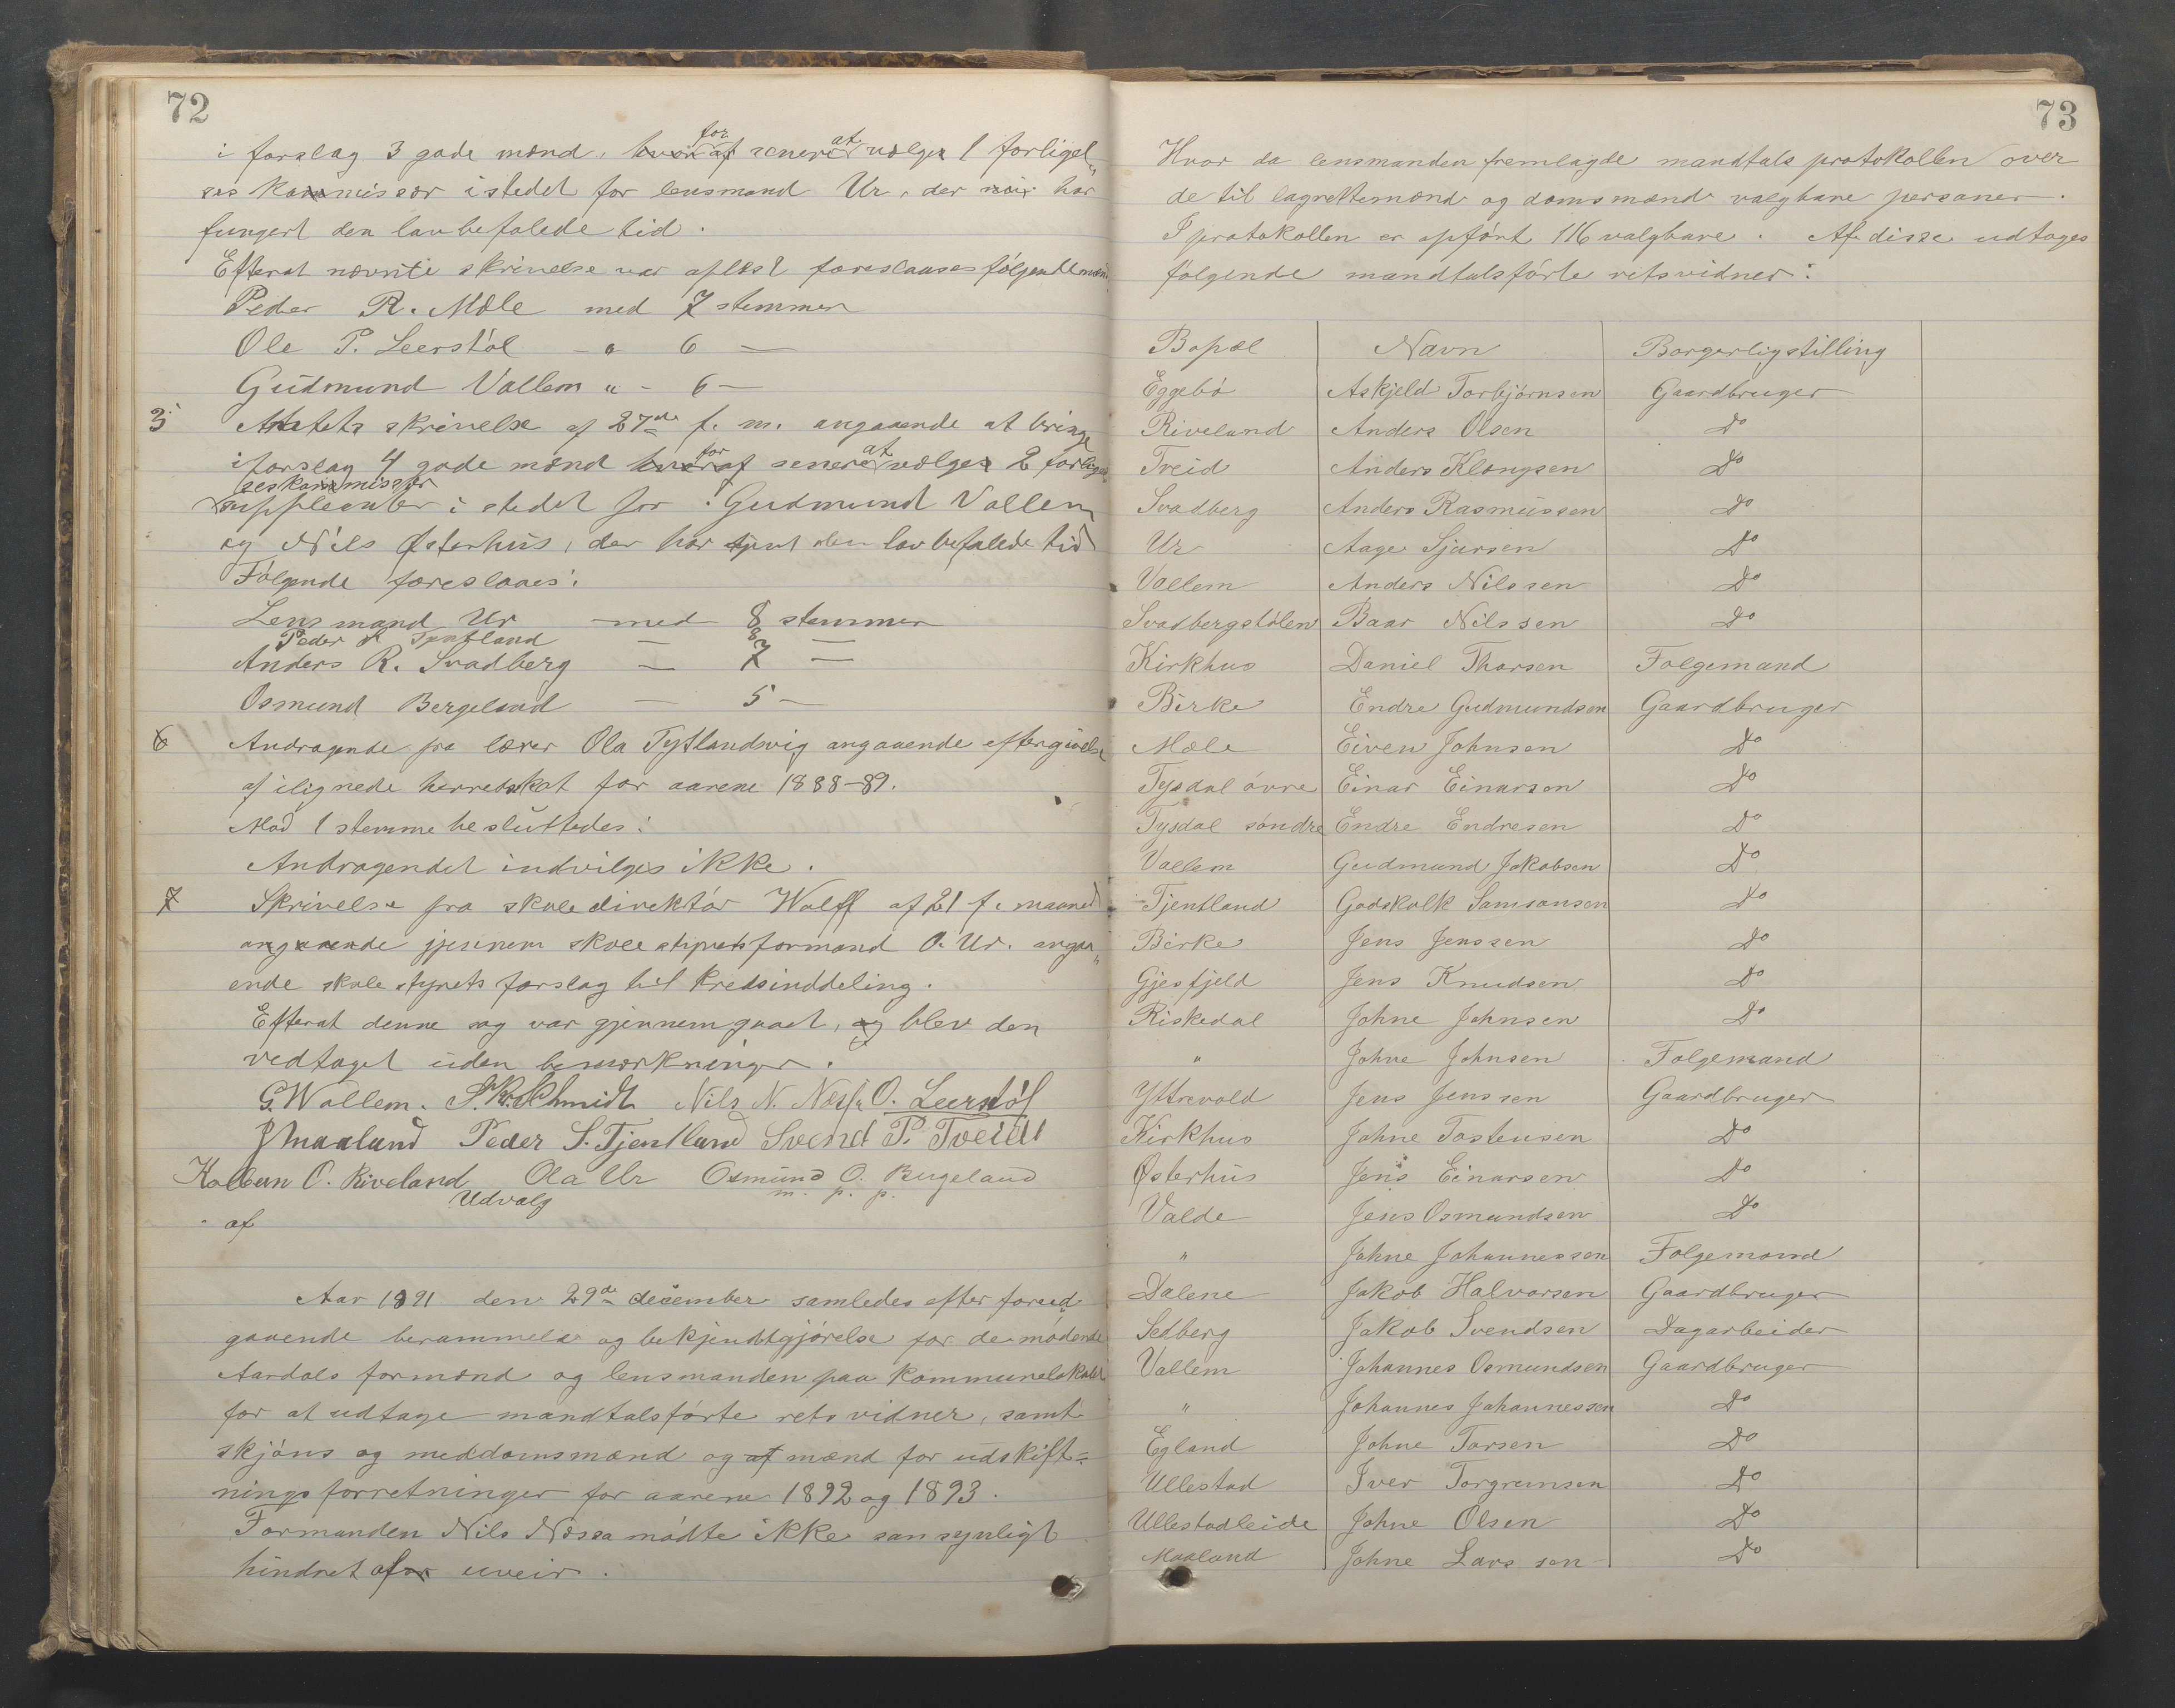 72
i forslag 3 gode mænd, hvoraf for senere at vælges 1 forligel„
ses kommissær istedet for lensmand Ur, der har
fungert den lovbefalede tid.
Efterat nævnte skrivelse var oplæst foreslaaes følgende mænd
Peder R. Mæle med 7 stemmer
Ole P. Leerstøl – „ 6 —
Gudmund Vallem „ – 6 –
5 Amtets skrivelse af 27de f. m. angaaende at bringe
i forslag 4 gode mænd hvoraf for senere at vælges 2 forligel„
seskommissær
suppleanter i stedet for: Gudmund Vallem
og Nils Østerhus, der har tjent den lovbefalede tid
Følgende foreslaaes:
Lensmand Ur – med 8 stemmer
Peder S Tjentland — 8 —
Anders R. Svadberg — 7 —
Osmund Bergeland — 5 –
6 Andragende fra lærer Ola Tytlandsvig angaaende eftergivelse
af ilignede herredsskat for aarene 1888–89.
Mod 1 stemme besluttedes:
Andragendet indvilges ikke.
7 Skrivelse fra skoledirektør Wolff af 21 f. maaned
angaaende gjennem skolestyrets formand O. Ur. angaa„
ende skolestyrets forslag til kredsinddeling.
Efterat denne sag var gjennemgaaet, og blev den
vedtaget uden bemærkninger.
G. Wallem. S. K. Schmidt Nils N. Næssa O. Leerstøl
J Maaland Peder S. Tjentland Svend P. Tveidt
Kolben O. Riveland Ola Ur Osmund O. Bergeland
Udvalg m. p. p.
af
Aar 1891 den 29de december samledes efter forud„
gaaende berammelse og bekjendtgjørelse for de mødende
Aardals formænd og lensmanden paa kommunelokalet
for at udtage mandtalsførte retsvidner, samt
skjøns og meddomsmænd og af mænd for udskift=
ningsforretninger for aarene 1892 og 1893.
Formanden Nils Næssa mødte ikke sansynligt
hindret af uveir.
73
Hvor da lensmanden fremlagde mandtals protokollen over
de til lagrettemænd og domsmænd valgbare personer.
I protokollen er opført 116 valgbare. Af disse udtoges
følgende mandtalsførte retsvidner:
Bopæl Navn Borgerligstilling
Eggebø Askjeld Torbjørnsen Gaardbruger
Riveland Anders Olsen Do
Treid Anders Klongsen Do
Svadberg Anders Rasmussen Do
Ur Aage Sjursen Do
Vallem Anders Nilssen Do
Svadbergstølen Baar Nilssen Do
Kirkhus Daniel Thorsen Folgemand
Birke Endre Gudmundsen Gaardbruger
Mæle Eiven Johnsen Do
Tysdal øvre Einar Einarsen Do
Tysdal søndre Endre Endresen Do
Vallem Gudmund Jakobsen Do
Tjentland Godskalk Samsonsen Do
Birke Jens Jenssen Do
Gjesfjeld Jens Knudsen Do
Riskedal Johne Johnsen Do
„ Johne Johnsen Folgemand
Yttrevold Jens Jenssen Gaardbruger
Kirkhus Johne Tostensen Do
Østerhus Jens Einarsen Do
Valde Jens Osmundsen Do
„ Johne Johannessen Folgemand
Dalene Jakob Halvorsen Gaardbruger
Sedberg Jakob Svendsen Dagarbeider
Vallem Johannes Osmundsen Gaardbruger
„ Johannes Johannessen Do
Egland Johne Torsen Do
Ullestad Iver Torgrimsen Do
Ullestadleide Johne Olsen Do
Maaland Johne Larssen Do